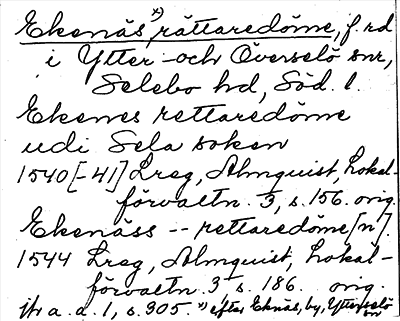 Ekenäs x) rättaredöme, f. rd
i Ytter- och Överselö snr,
Selebo hd, Söd. l.
Ekenes rettaredöme
udi Sela soken
1540[-41] Lreg, Almquist, Lokal-
förvaltn. 3, s. 156. orig.
Ekenäss -- rettaredöme[n].
1544 Lreg, Almquist, Lokal-
förvaltn. 3 s. 186. orig.
jfr a. a. 1, s. 305. x) efter Eknäs, by, Ytterselö
sn